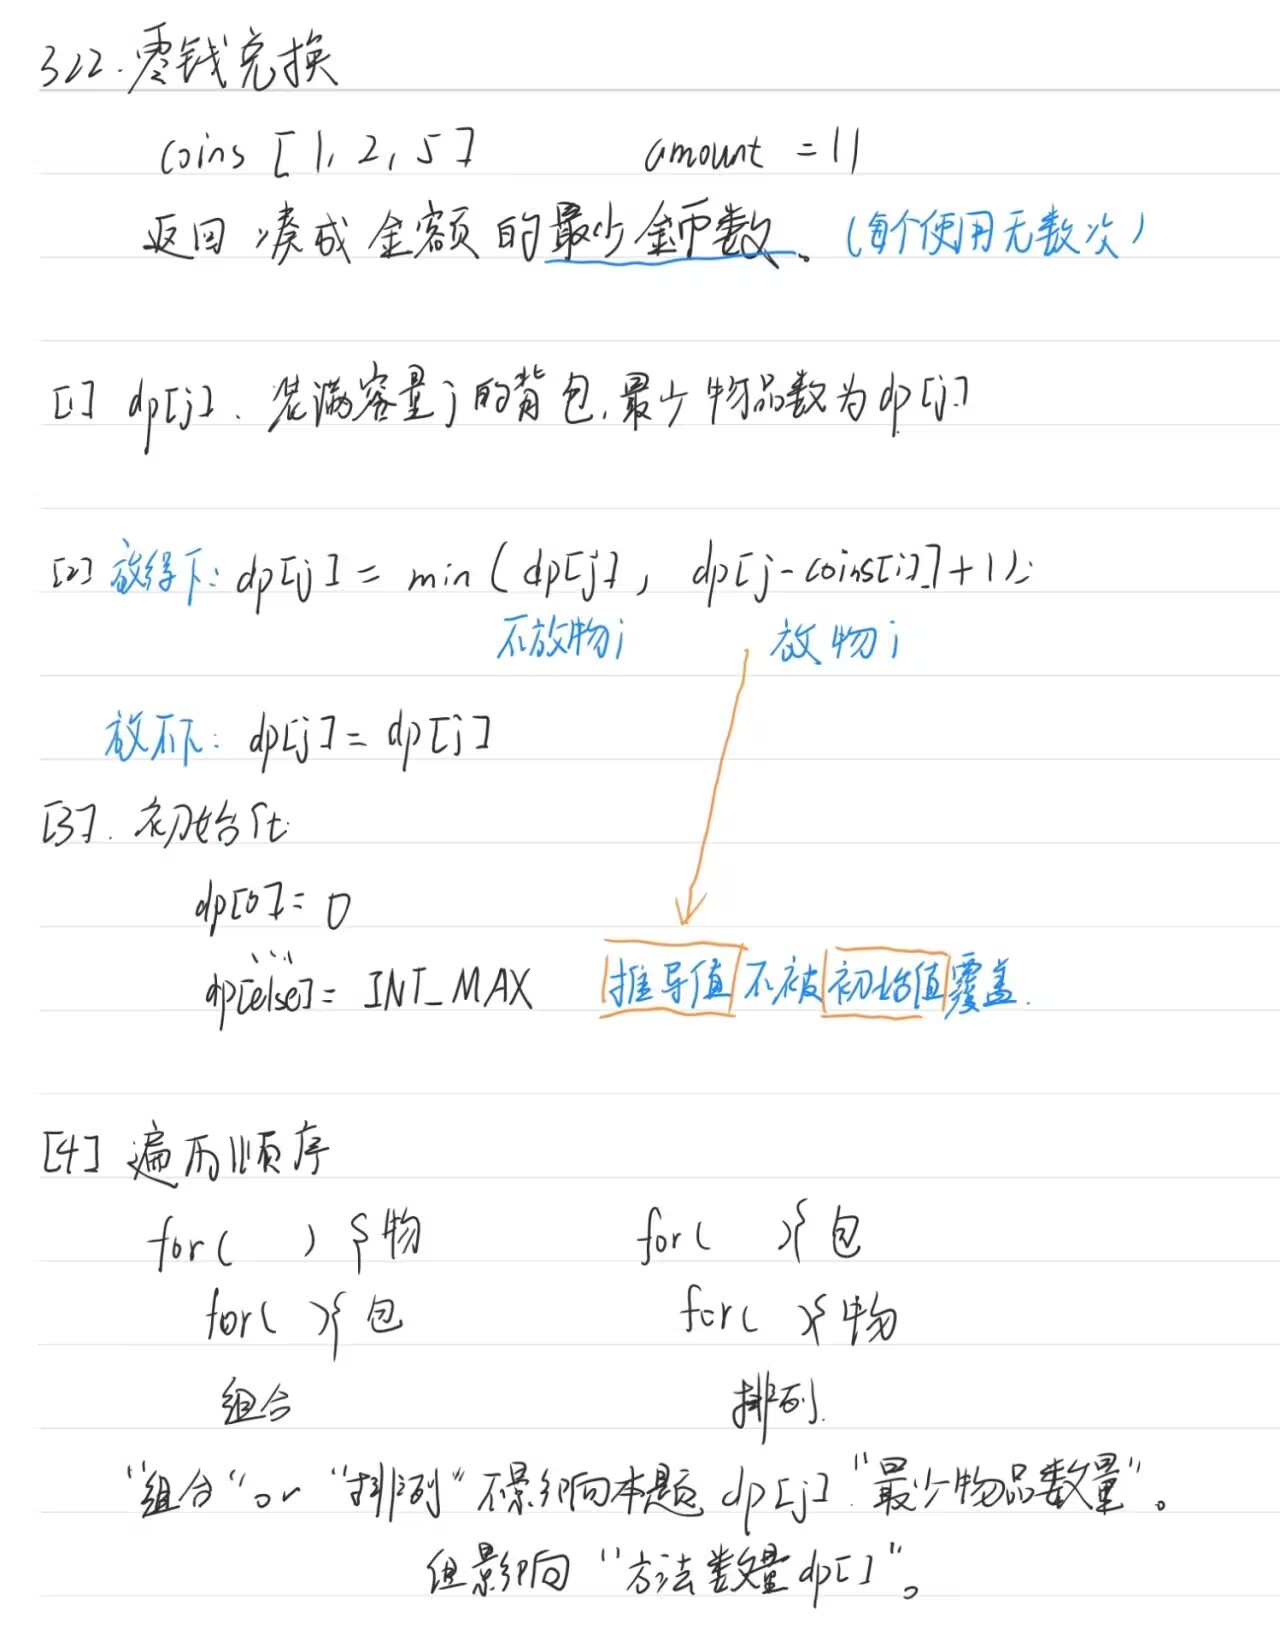 322.零钱兑换
coins [1, 2, 5] amount = 11
返回凑成金额的最少金币数。(每个使用无数次)
[1] dp[j]. 装满容量j的背包,最少物品数为dp[j]
[2] 放得下: dp[j] = min ( dp[j], dp[j-coins[i]]+1);
不放物i 放物i
放不下: dp[j] = dp[j]
[3]. 初始化
dp[0] = 0
dp[else] = INT_MAX 推导值不被初始值覆盖.
[4] 遍历顺序
for( ){物 for( ){包
for( ){包 for( ){物
组合 排列.
"组合" or "排列"不影响本题 dp[j] "最少物品数量"。
但影响 "方法数量dp[]"。